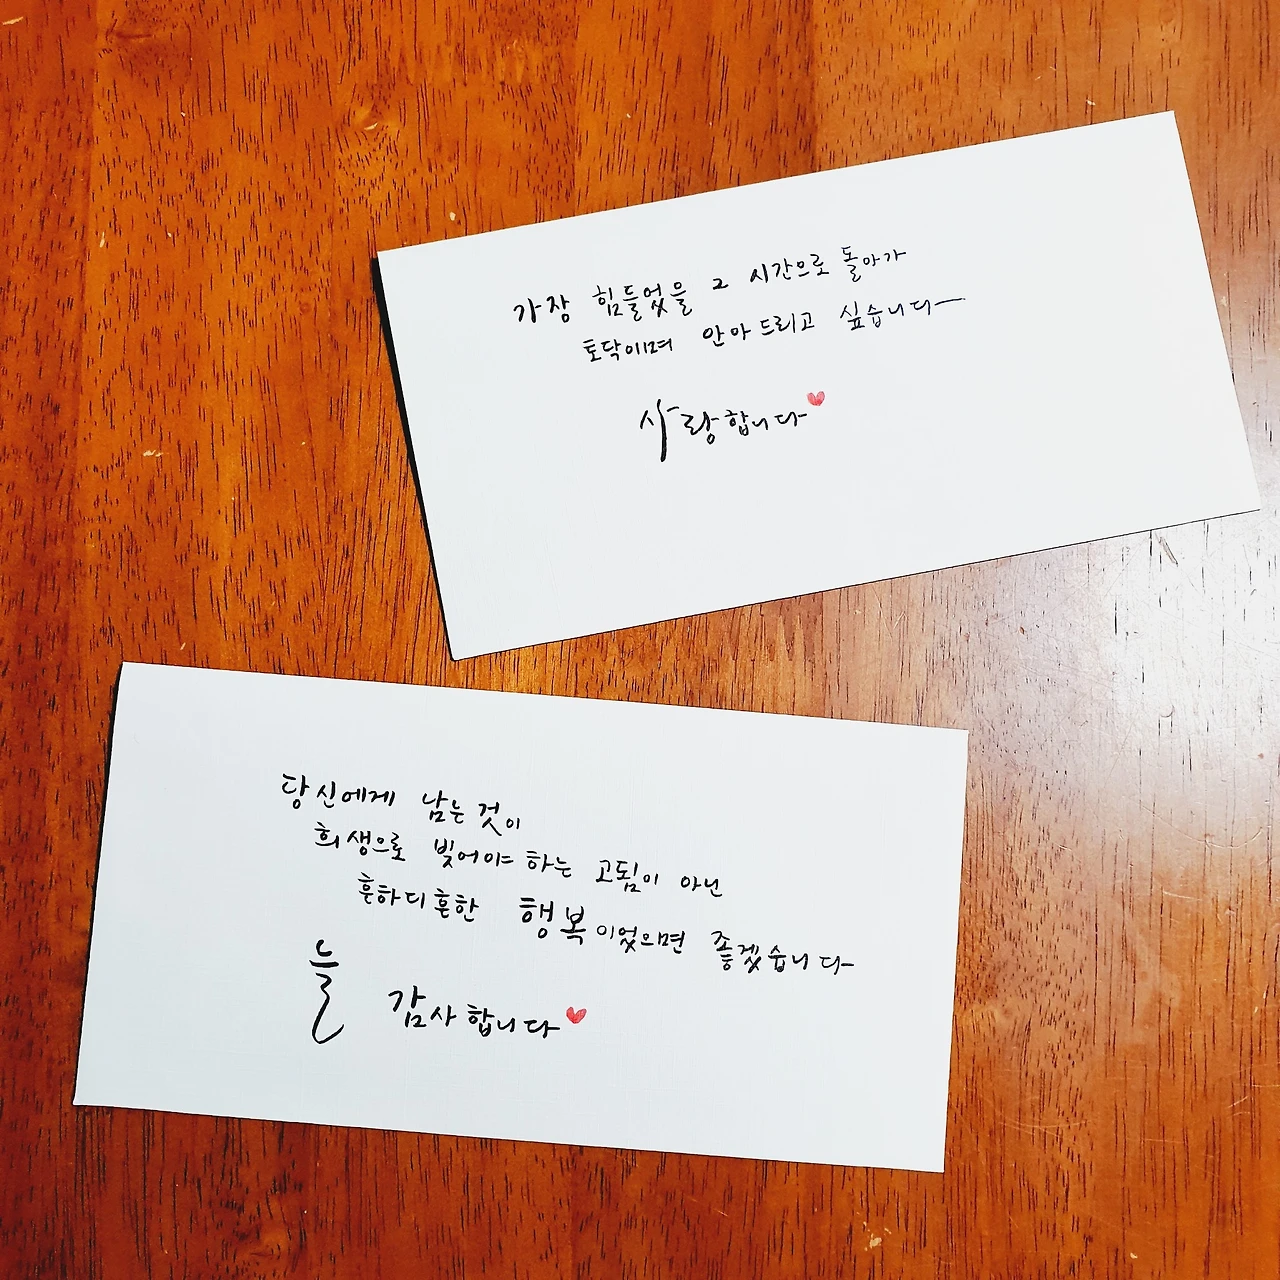 가장 힘들었을 그 시간으로 돌아가
토닥이며 안아 드리고 싶습니다
사랑합니다
당신에게 남는 것이
희생으로 빚어야 하는 고됨이 아닌
흔하디 흔한 행복이었으면 좋겠습니다
늘 감사합니다